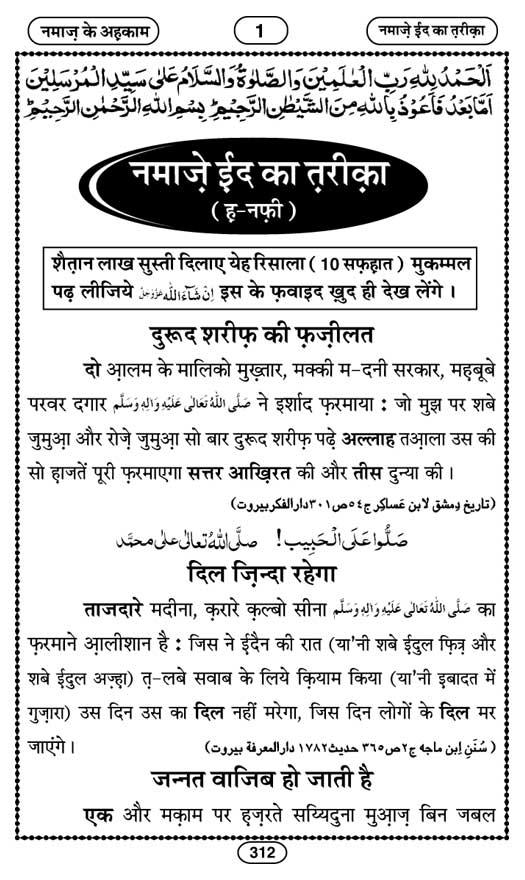 नमाज़ के अहकाम
1
नमाज़े ईद का त़रीक़ा
اَلْحَمْدُ لِلّٰهِ رَبِّ الْعٰلَمِيْنَ وَالصَّلٰوةُ وَالسَّلَامُ عَلٰى سَيِّدِ الْمُرْسَلِيْنَ
اَمَّا بَعْدُ فَاَعُوْذُ بِاللّٰهِ مِنَ الشَّيْطٰنِ الرَّجِيْمِ بِسْمِ اللّٰهِ الرَّحْمٰنِ الرَّحِيْمِ
नमाज़े ईद का त़रीक़ा
( ह़-नफ़ी )
शैत़ान लाख सुस्ती दिलाए येह रिसाला ( 10 सफ़ह़ात ) मुकम्मल
पढ़ लीजिये اِنْ شَآءَ اللّٰه عَزَّوَجَلَّ इस के फ़वाइद ख़ुद ही देख लेंगे ।
दुरूद शरीफ़ की फ़ज़ीलत
दो आ़लम के मालिको मुख़्तार, मक्की म-दनी सरकार, मह़बूबे
परवर दगार صَلَّى اللّٰهُ تَعَالٰى عَلَيْهِ وَاٰلِهٖ وَسَلَّم ने इर्शाद फ़रमाया : जो मुझ पर शबे
जुमुआ़ और रोजे़ जुमुआ़ सो बार दुरूद शरीफ़ पढ़े अल्लाह तआ़ला उस की
सो ह़ाजतें पूरी फ़रमाएगा सत्तर आख़िरत की और तीस दुन्या की ।
(تاريخ دمشق لابن عساكر ج٥٤ ص٣٠١ دارالفكر بيروت)
صَلُّوْا عَلَى الْحَبِيْب! صلَّى اللّٰهُ تعالٰى علٰى محمَّد
दिल ज़िन्दा रहेगा
ताजदारे मदीना, क़रारे क़ल्बो सीना صَلَّى اللّٰهُ تَعَالٰى عَلَيْهِ وَاٰلِهٖ وَسَلَّم का
फ़रमाने आ़लीशान है : जिस ने ई़दैन की रात (या'नी शबे ई़दुल फ़ित़्र और
शबे ई़दुल अज़्ह़ा) त़-लबे सवाब के लिये क़ियाम किया (या'नी इ़बादत में
गुज़ारा) उस दिन उस का दिल नहीं मरेगा, जिस दिन लोगों के दिल मर
जाएंगे । ( سُنَنِ اِبن ماجه ج٢ ص٣٦٥ حديث١٧٨٢ دارالمعرفة بيروت )
जन्नत वाजिब हो जाती है
एक और मक़ाम पर ह़ज़रते सय्यिदुना मुआ़ज़ बिन जबल
312